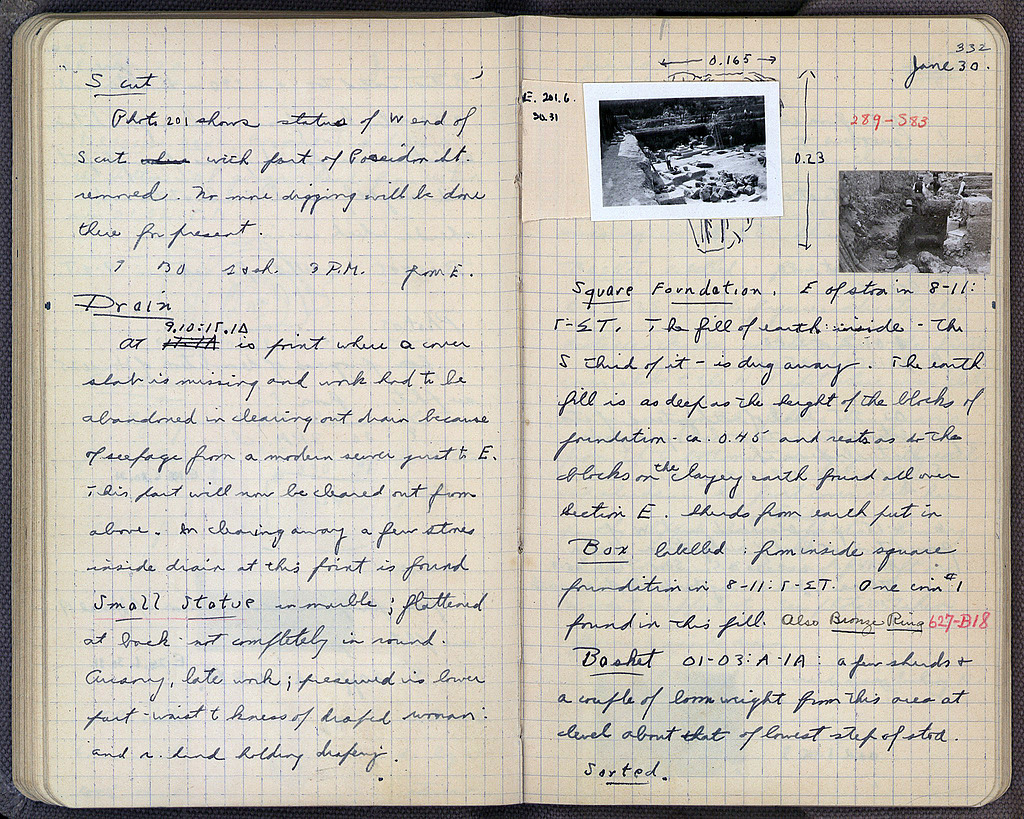 S cut
Photo 201 shows status of W end of
S cut with part of Poseidon St.
removed. No more digging will be done
there for present.
7 30 20 sh. 3 P.M. from E.
Drain
9.10:ΙΓ.ΙΔ
At is point where a cover
slab is missing and work had to be
abandoned in clearing out drain because
of seepage from a modern sewer just to E.
This part will now be cleared out from
above. In clearing away a few stones
inside drain at this point is found
Small Statue in marble; flattened
at back - not completely in round.
Cursory, late work; preserved is lower
part - waist to knees of draped woman:
and r. hand holding drapery.
332
June 30.
0.165
E. 201.6.
30.31
289-S83
0.23
Square Foundation. E of stoa in 8-11:
Γ-ΣΤ. The fill of earth inside - the
S third of it - is dug away. The earth
fill is as deep as the height of the blocks of
foundation - ca. 0.45 and rests as do the
blocks on the clayey earth found all over
Section E. Sherds from earth put in
Box labelled: from inside square
foundation in 8-11: Γ-ΣΤ. One coin #1
found in this fill. Also Bronze Ring 627-B18
Basket 01-03: A-1A: a few sherds +
a couple of loomweight from this area at
level about that of lowest step of stoa.
Sorted.